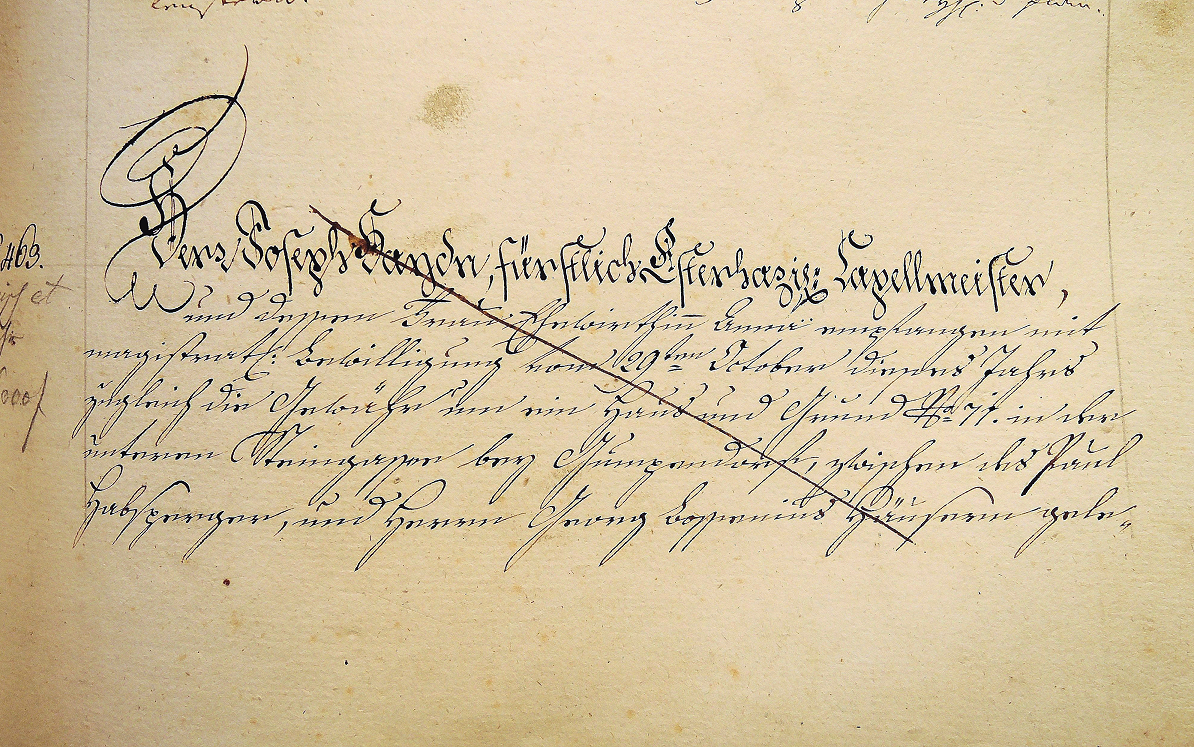 463.
Herr Joseph Haydn, fürstlich Esterhazis: Capellmeister,
und dessen Frau Ehewirthin Anna empfangen mit
magistrat: Bewilligung vom 29ten October dieses Jahrs
zugleich die Gewähr um ein Haus und Grund No 71. in der
unteren Steingasse bey Gumpendorf, zwischen des Paul
Habsperger, und Herrn Georg Häusern gele-